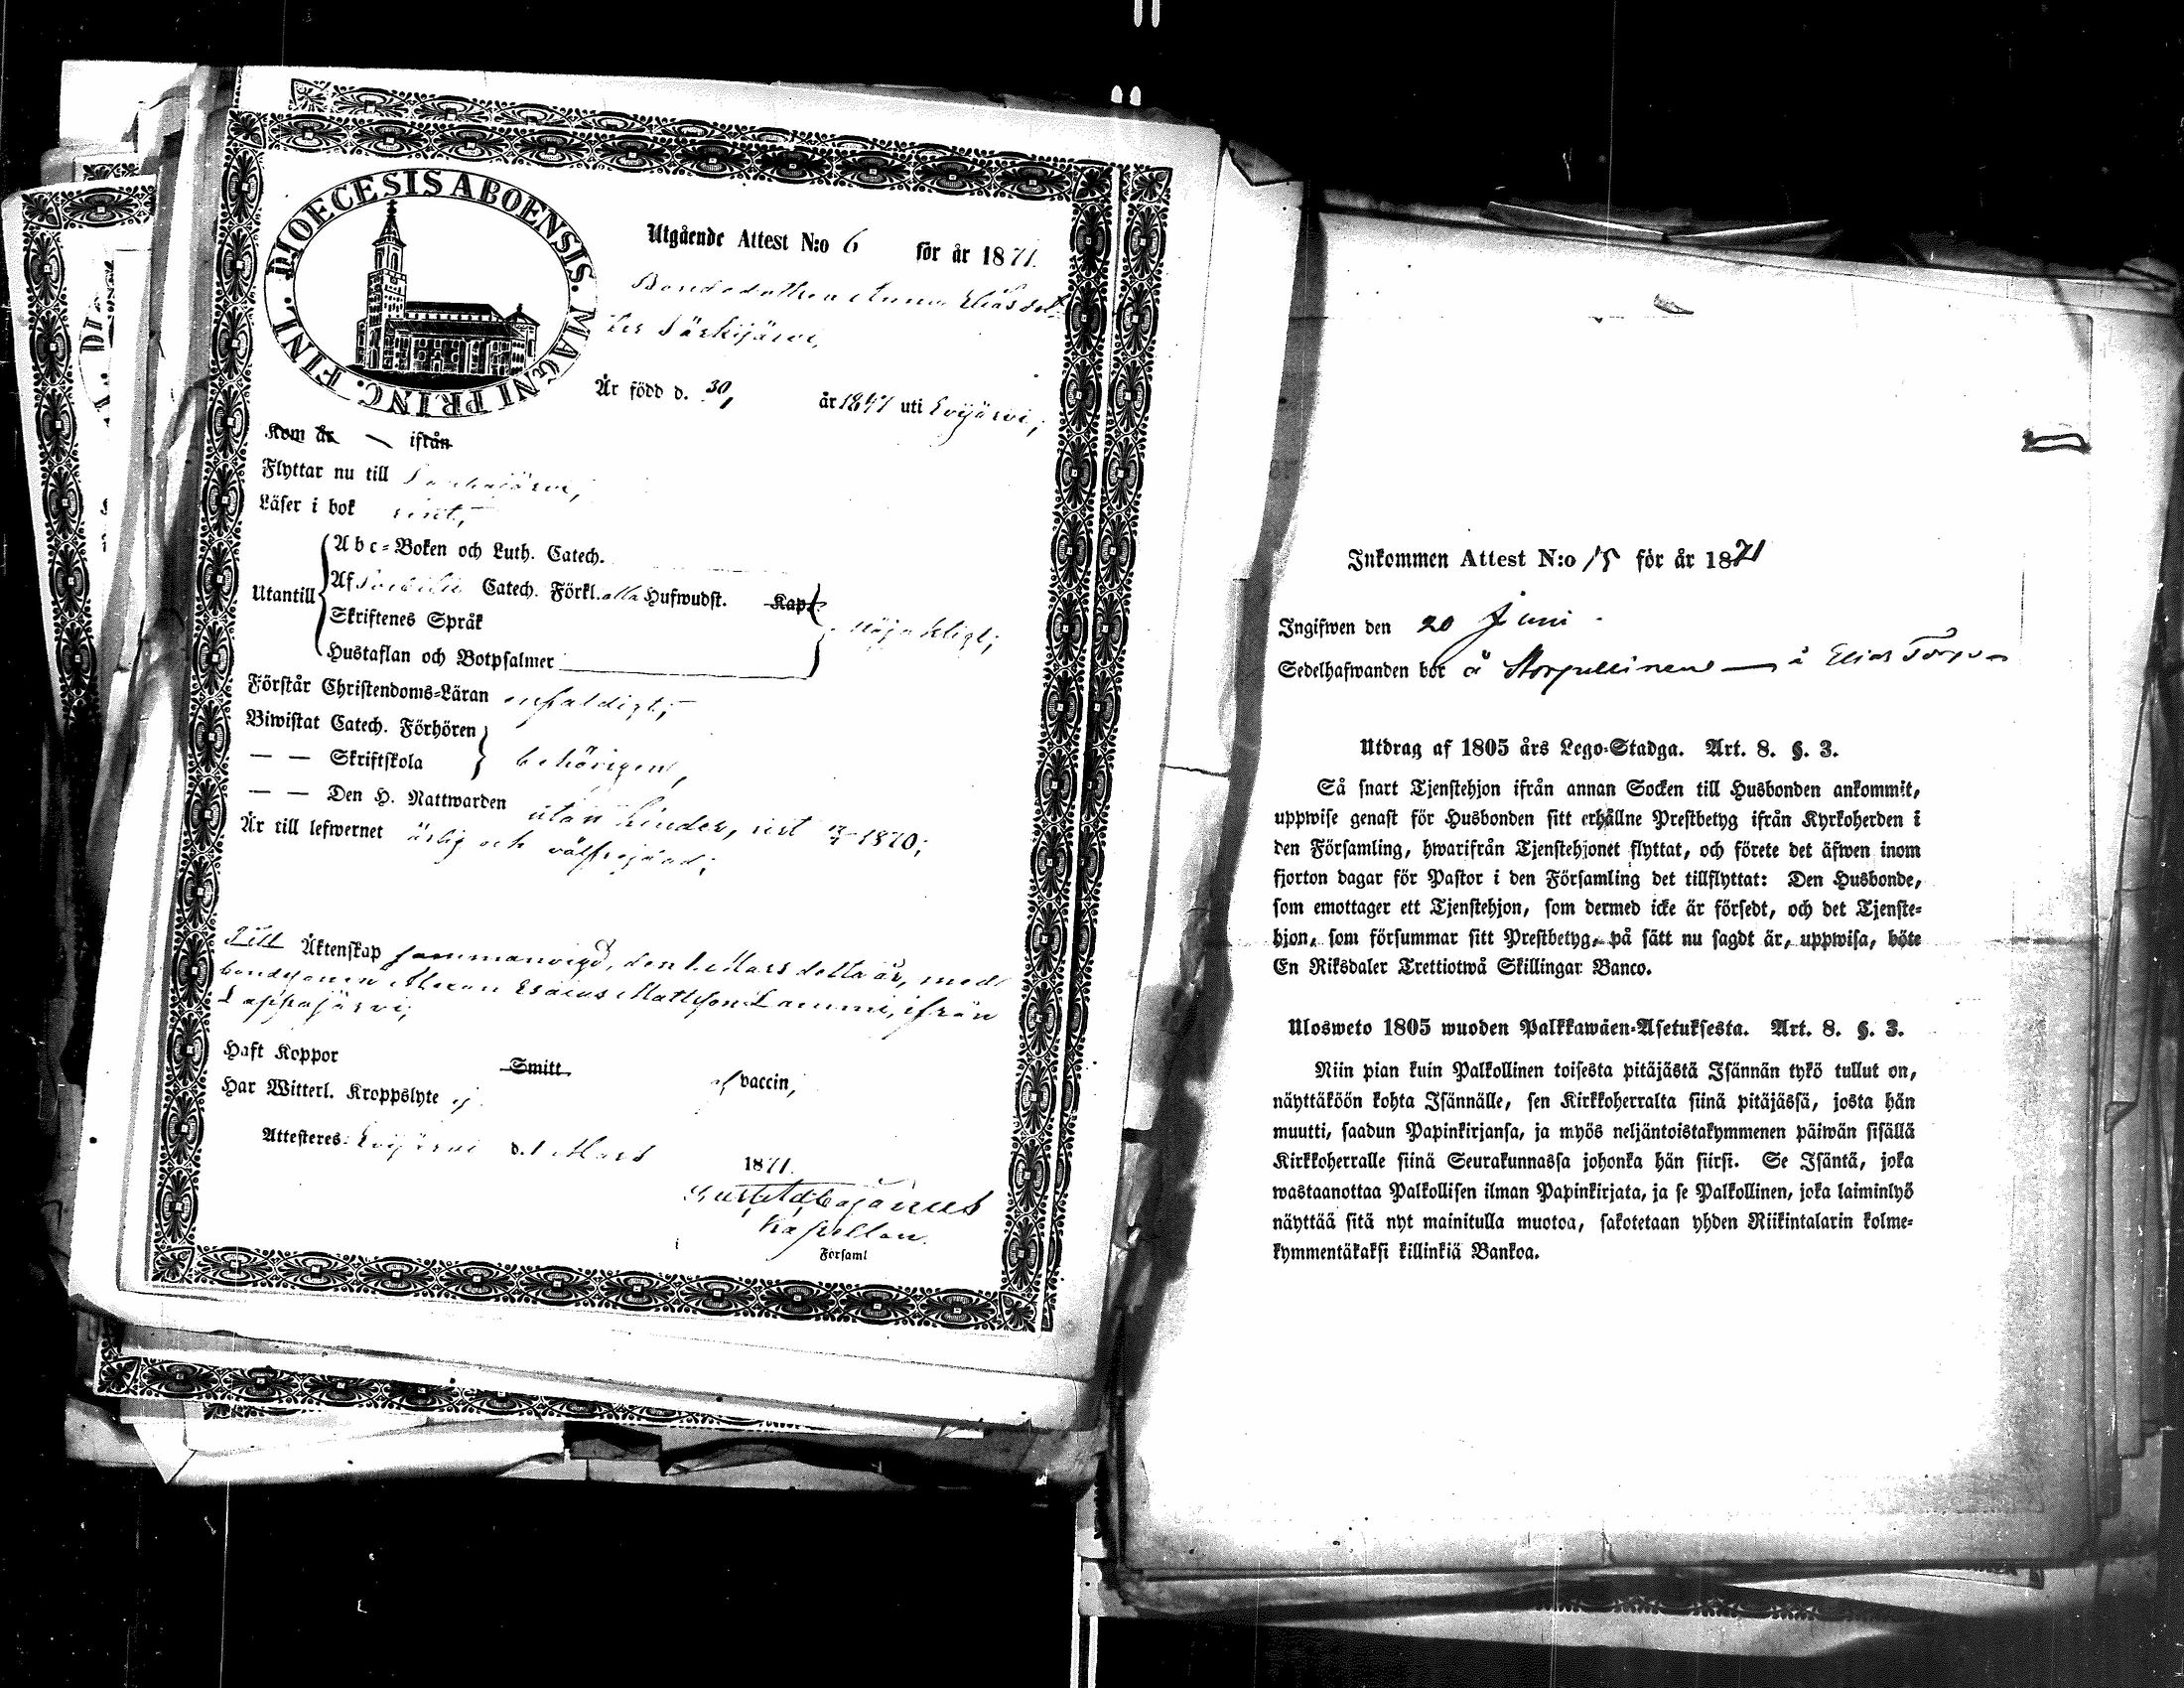 DIOECESIS ABOENSIS. MAGNI PRINC. FINL.
Utgående Attest N:o 6 för år 1871.
Bondedottren Anna Eliasdot-
ter Särkijärvi,
Är född d. 30/ år 1847 uti Evijärvi,
Kom år — ifrån
Flyttar nu till Lappajärvi,
Läser i bok rent,
Utantill
Abc-Boken och Luth. Catech.
Af Svebilii Catech. Förkl. alla Hufwudst. Kap.
Skriftenes Språk
Hustaflan och Botpsalmer
nöjaktligt;
Förstår Christendoms-Läran enfaldigt;
Biwistat Catech. Förhören
— — Skriftskola
behörigen,
— — Den H. Nattwarden utan hinder, sist 1870;
Är till lefwernet ärlig och välfrejdad;
Till Äktenskap sammanvigd, den 1 Mars detta år, med
bondesonen Esaias Mattsson Lammi, ifrån
Lappajärvi;
Haft Koppor Smitt af vaccin,
Har Witterl. Kroppslyte ej.
Attesteres: Evijärvi d. 1 Mars 1871.
Kapellan.
Församl
Inkommen Attest N:o 15 för år 1871
Ingifwen den 20 Juni
Sedelhafwanden bor å å Elias
Utdrag af 1805 års Lego-Stadga. Art. 8. §. 3.
Så snart Tjenstehjon ifrån annan Socken till Husbonden ankommit,
uppwise genast för Husbonden sitt erhållne Prestbetyg ifrån Kyrkoherden i
den Församling, hwarifrån Tjenstehjonet flyttat, och förete det äfwen inom
fjorton dagar för Pastor i den Församling det tillflyttat: Den Husbonde,
som emottager ett Tjenstehjon, som dermed icke är försedt, och det Tjenste-
hjon, som försummar sitt Prestbetyg, på sätt nu sagdt är, uppwisa, böte
En Riksdaler Trettiotwå Skillingar Banco.
Ulosweto 1805 wuoden Palkkawäen-Asetuksesta. Art. 8. §. 3.
Niin pian kuin Palkollinen toisesta pitäjästä Isännän tykö tullut on,
näyttäköön kohta Isännälle, sen Kirkkoherralta siinä pitäjässä, josta hän
muutti, saadun Papinkirjansa, ja myös neljäntoistakymmenen päiwän sisällä
Kirkkoherralle siinä Seurakunnassa johonka hän siirsi. Se Isäntä, joka
wastaanottaa Palkollisen ilman Papinkirjata, ja se Palkollinen, joka laiminlyö
näyttää sitä nyt mainitulla muotoa, sakotetaan yhden Riikintalarin kolme-
kymmentäkaksi killinkiä Bankoa.